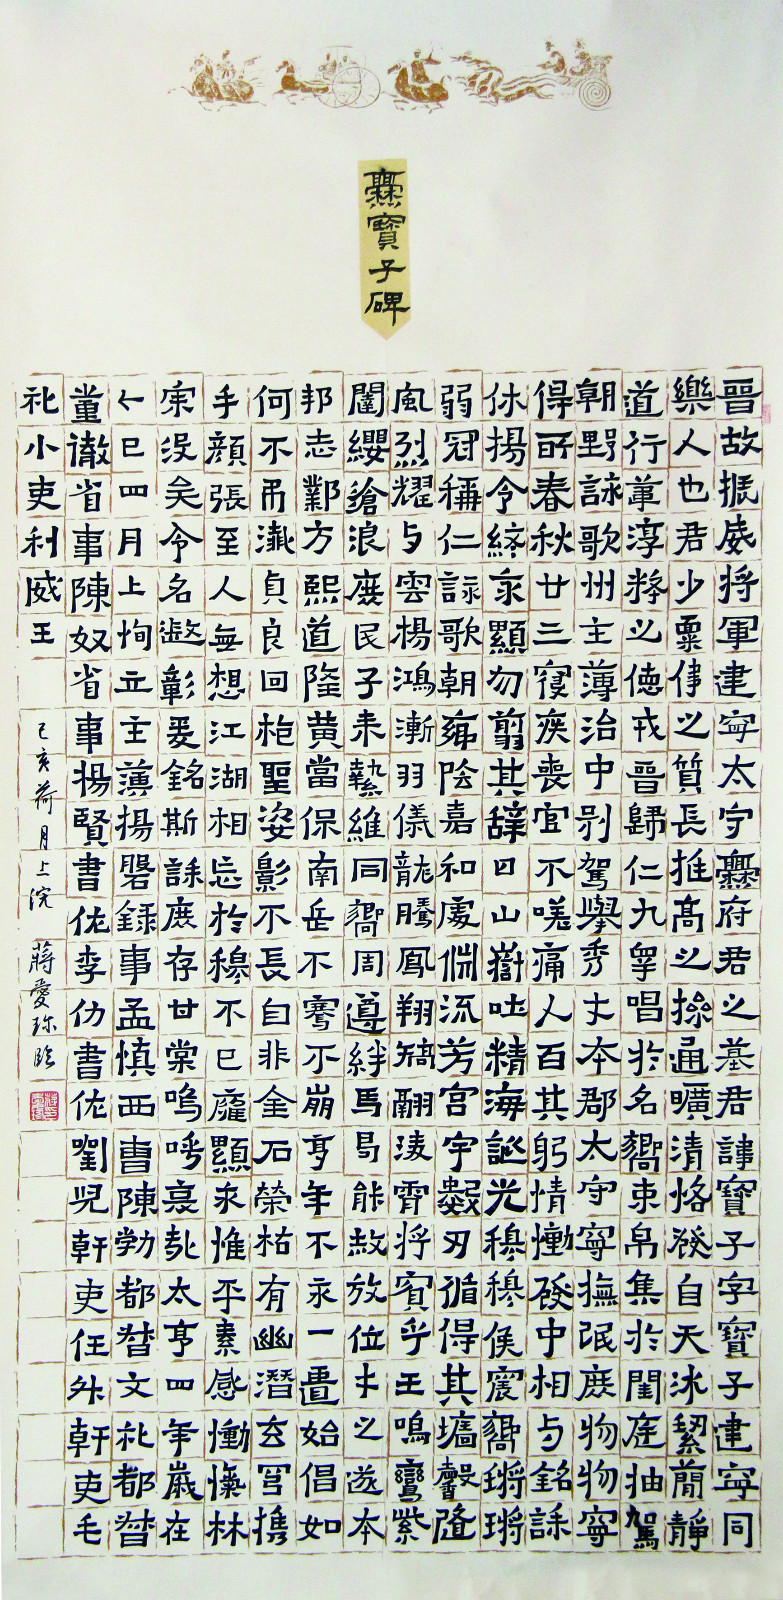 爨寶子碑
晉故振威將軍建寧太守爨府君之墓君諱寶子字寶子建寧同
樂人也君少稟偉之質長挺高之操通曠清恪發自天冰絜簡靜
道行葦淳粹之德戎晉歸仁九皋唱於名嚮束帛集於閨庭抽駕
朝野詠歌州主薄治中別駕舉秀才本郡太守寧撫氓庶物物寧
得所春秋廿三寑疾喪官不嗟痛人百其躬情慟發中相与銘誄
休揚令終永顯勿翦其辭曰山嶽吐精海誕光穆穆侯震嚮鏘鏘
弱冠稱仁詠歌朝鄉陰嘉和處淵流芳宮宇數刃循得其墻馨隨
風烈耀与雲揚鴻漸羽儀龍騰鳳翔矯翮凌霄將賓乎王鳴鸞紫
闥纓滄浪庶民子来縶維同嚮周遵絆馬曷能赦放位才之邈本
邦志鄴方熙道隆黃當保南岳不騫不崩享年不永一匱始倡如
何不弔殲貞良回枹聖姿影不長自非金石榮枯有幽潛玄穹攜
手顏張至人無想江湖相忘於穆不已龐顯永惟平素感慟懷林
宗没矣令名遐彰爰銘斯誄庶存甘棠嗚呼哀哉太亨四年歲在
乙巳四月上恂立主薄揚磐錄事孟慎西曹陳勃都督文礼都督
董徹省事陳奴省事揚賢書佐李仂書佐劉兒幹吏任升幹吏毛
礼小吏利威王
己亥荷月上浣 蔣愛珍臨